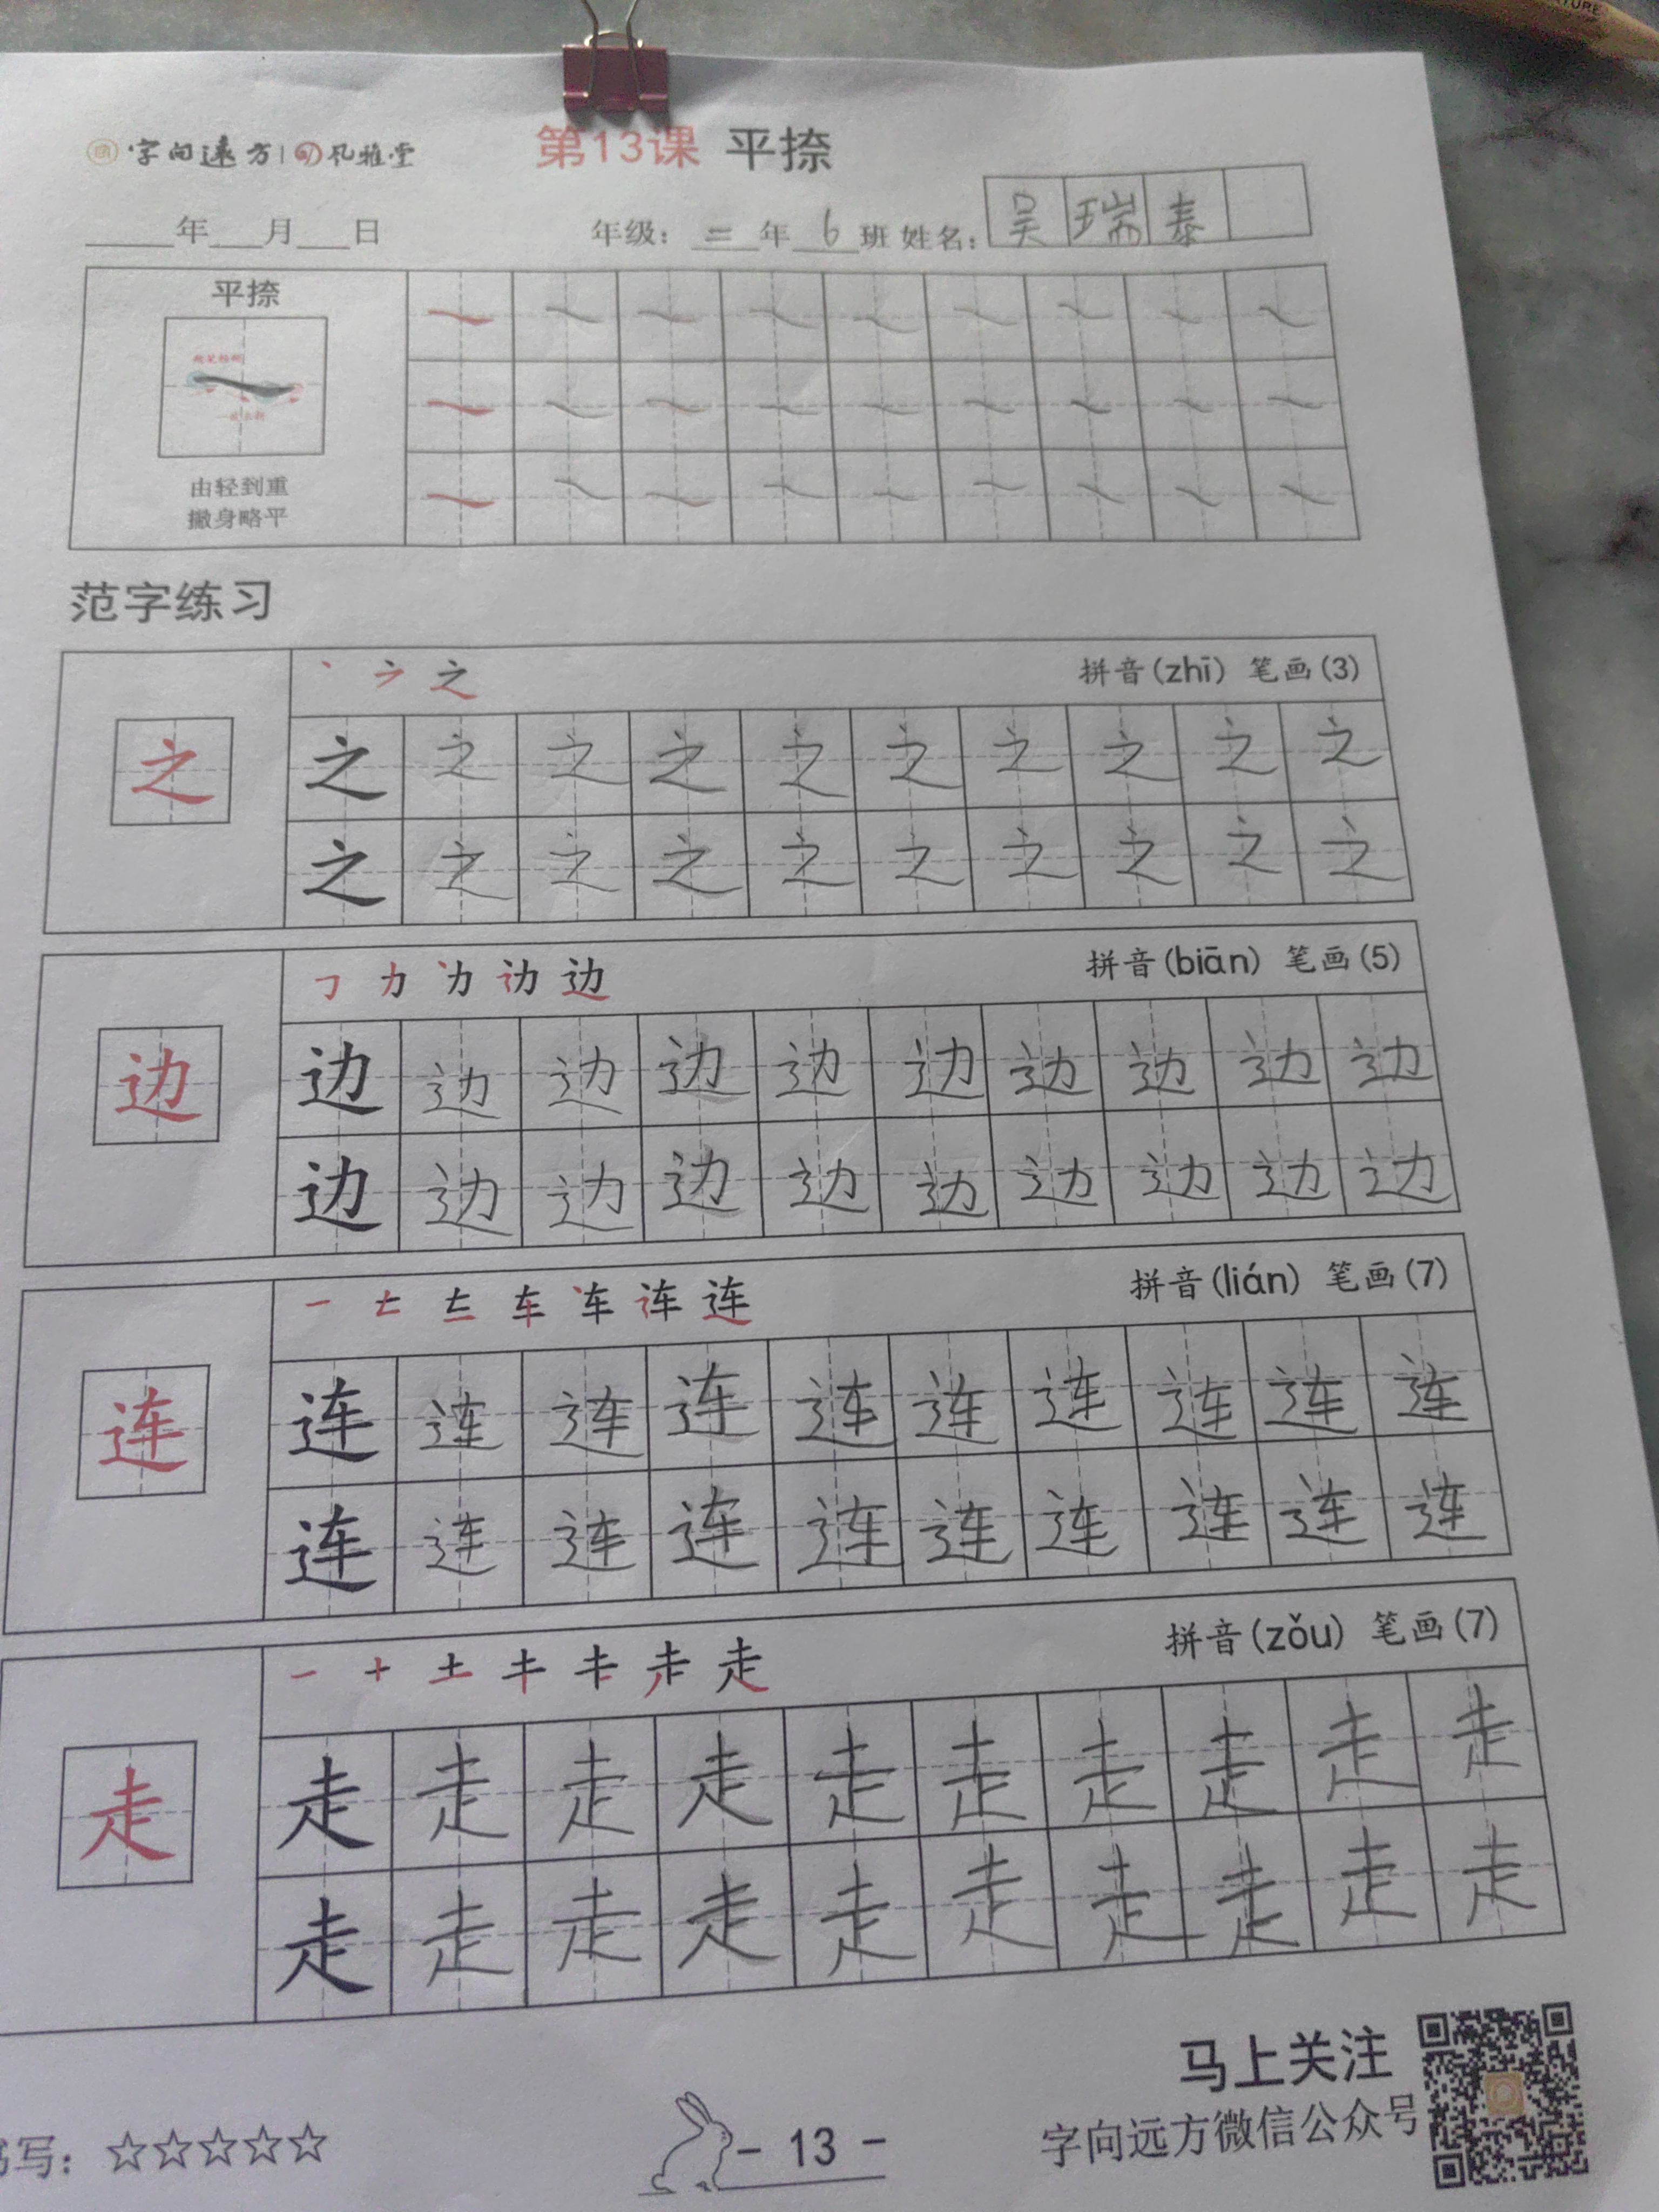 字向远方 风雅堂
第13课 平捺
年 月 日 年级: 二 年 6 班 姓名: 吴瑞泰
平捺
由轻到重
撇身略平
范字练习
丶 之 拼音(zhī) 笔画(3)
之 之 之 之 之 之 之 之 之 之 之
之 之 之 之 之 之 之 之 之 之
㇆ 力 边 拼音(biān) 笔画(5)
边 边 边 边 边 边 边 边 边 边 边
边 边 边 边 边 边 边 边 边 边
一 车 连 拼音(lián) 笔画(7)
连 连 连 连 连 连 连 连 连 连 连
连 连 连 连 连 连 连 连 连 连
一 十 土 走 拼音(zǒu) 笔画(7)
走 走 走 走 走 走 走 走 走 走 走
走 走 走 走 走 走 走 走 走 走
马上关注
字向远方微信公众号
写: ☆☆☆☆☆ - 13 -